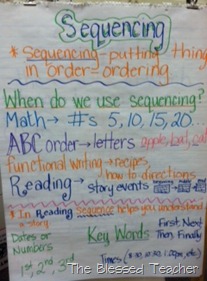 Sequencing
* Sequencing - putting thing
in order = ordering
When do we use sequencing?
Math → #s 5, 10, 15, 20
ABC order → letters apple, bad, cat
functional writing → recipes,
how to directions
Reading → story events
* In Reading Sequence helps you understand
a story
Dates or
Numbers
1st, 2nd, 3rd
Key Words
First, Next
Then, Finally
Times
The Blessed Teacher